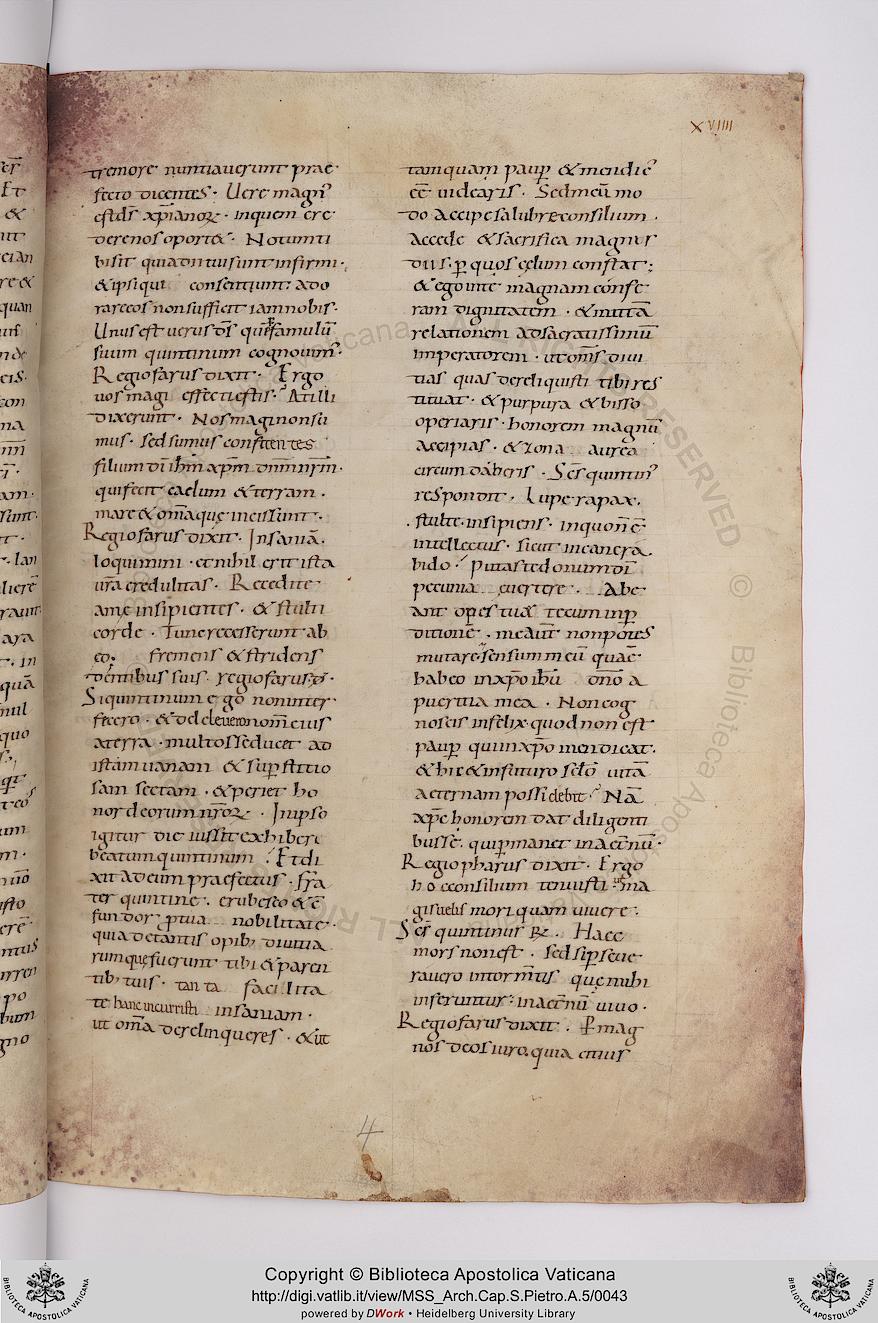 XVIIII
tremore nuntiaverunt prae
fecto dicentes. Uere magn'
est ds xpianoꝝ. inquem cre
derenos oport&. Notumti
bisit quia dii tui sunt infirmi.
&ipsi qui consentiunt; ado
rare eos non sufficit iam nobis.
Unus est uerus ds qui famulū
suum quintinum cognouim'.
Regiofarus dixit. Ergo
uos magi effecti estis. At illi
dixerunt. Nos magi non su
mus. sed sumus confitentes
filium di ihm xpm dnm nrm.
qui fecit caelum & terram.
mare & oma que in eis sunt.
Regiofarus dixit. Insaniā
loquimini. et nihil erit ista
ura credulitas. Recedite
a me insipientes. & stulti
corde. Tunc recesserunt ab
eo. fremens & stridens
dentibus suis. regiofarus. d.
Si quintinum ergo non inter
fecero. & deleuero nom eius
a terra. multos seducet ad
istam uanam & supstitio
sam sectam. & periet ho
nor deorum nroꝝ. In ipso
igitur die iussit exhiberi
beatum quintinum. Et di
xit ad eum praefectus. fra
ter quintine. erubesco & c
fundor p tua nobilitate.
quia de tantis opib; diuitia
rumque fuerunt tibi & paren
tib; tuis. tanta facilita
te hanc incurristi insaniam.
ut oma derelinqueres. & ut
tamquam paup & mendic'
eē uidearis. Sed meū mo
do accipe salubre consilium.
Accede & sacrifica magnis
diis. p quos celum constat;
& ego inte magnam confe
ram dignitatem. & mittā
relationem ad sacratissimū
imperatorem. ut oms diui
tias quas dereliquisti tibi res
tituat. & purpura & bisso
operiaris. honorem magnū
accipias. & zona aurea
circumdaberis. Scs quintin'
respondit. Lupe rapax.
stulte. insipiens. in quo n ē
intellectus. sicut in cane ra
bido. Putas te donum di
pecunia euertere. Abe
ant opes tuae tecum in p
ditionē. me aut non potes
mutare. sensum meū quae
habeo in xpo ihu dno a
pueritia mea. Non cog
noscis infelix. quod non est
paup qui in xpo mendicat.
& hic & in futuro sclo uitā
aeternam possidebit. Nā
xpc honorem dat diligenti
bus se. qui pmanet in aetnū.
Regiopharus dixit. Ergo
hoc consilium tenuisti ut ma
gis uelis mori quam uiuere.
Scs quintinus R. Haec
mors non est. sed si pseue
rauero in tormtis que mihi
inferuntur. in aetnū uiuo.
Regiofarus dixit. P mag
nos deos iuro. quia citius
4
Copyright © Biblioteca Apostolica Vaticana
http://digi.vatlib.it/view/MSS_Arch.Cap.S.Pietro.A.5/0043
powered by DWork • Heidelberg University Library